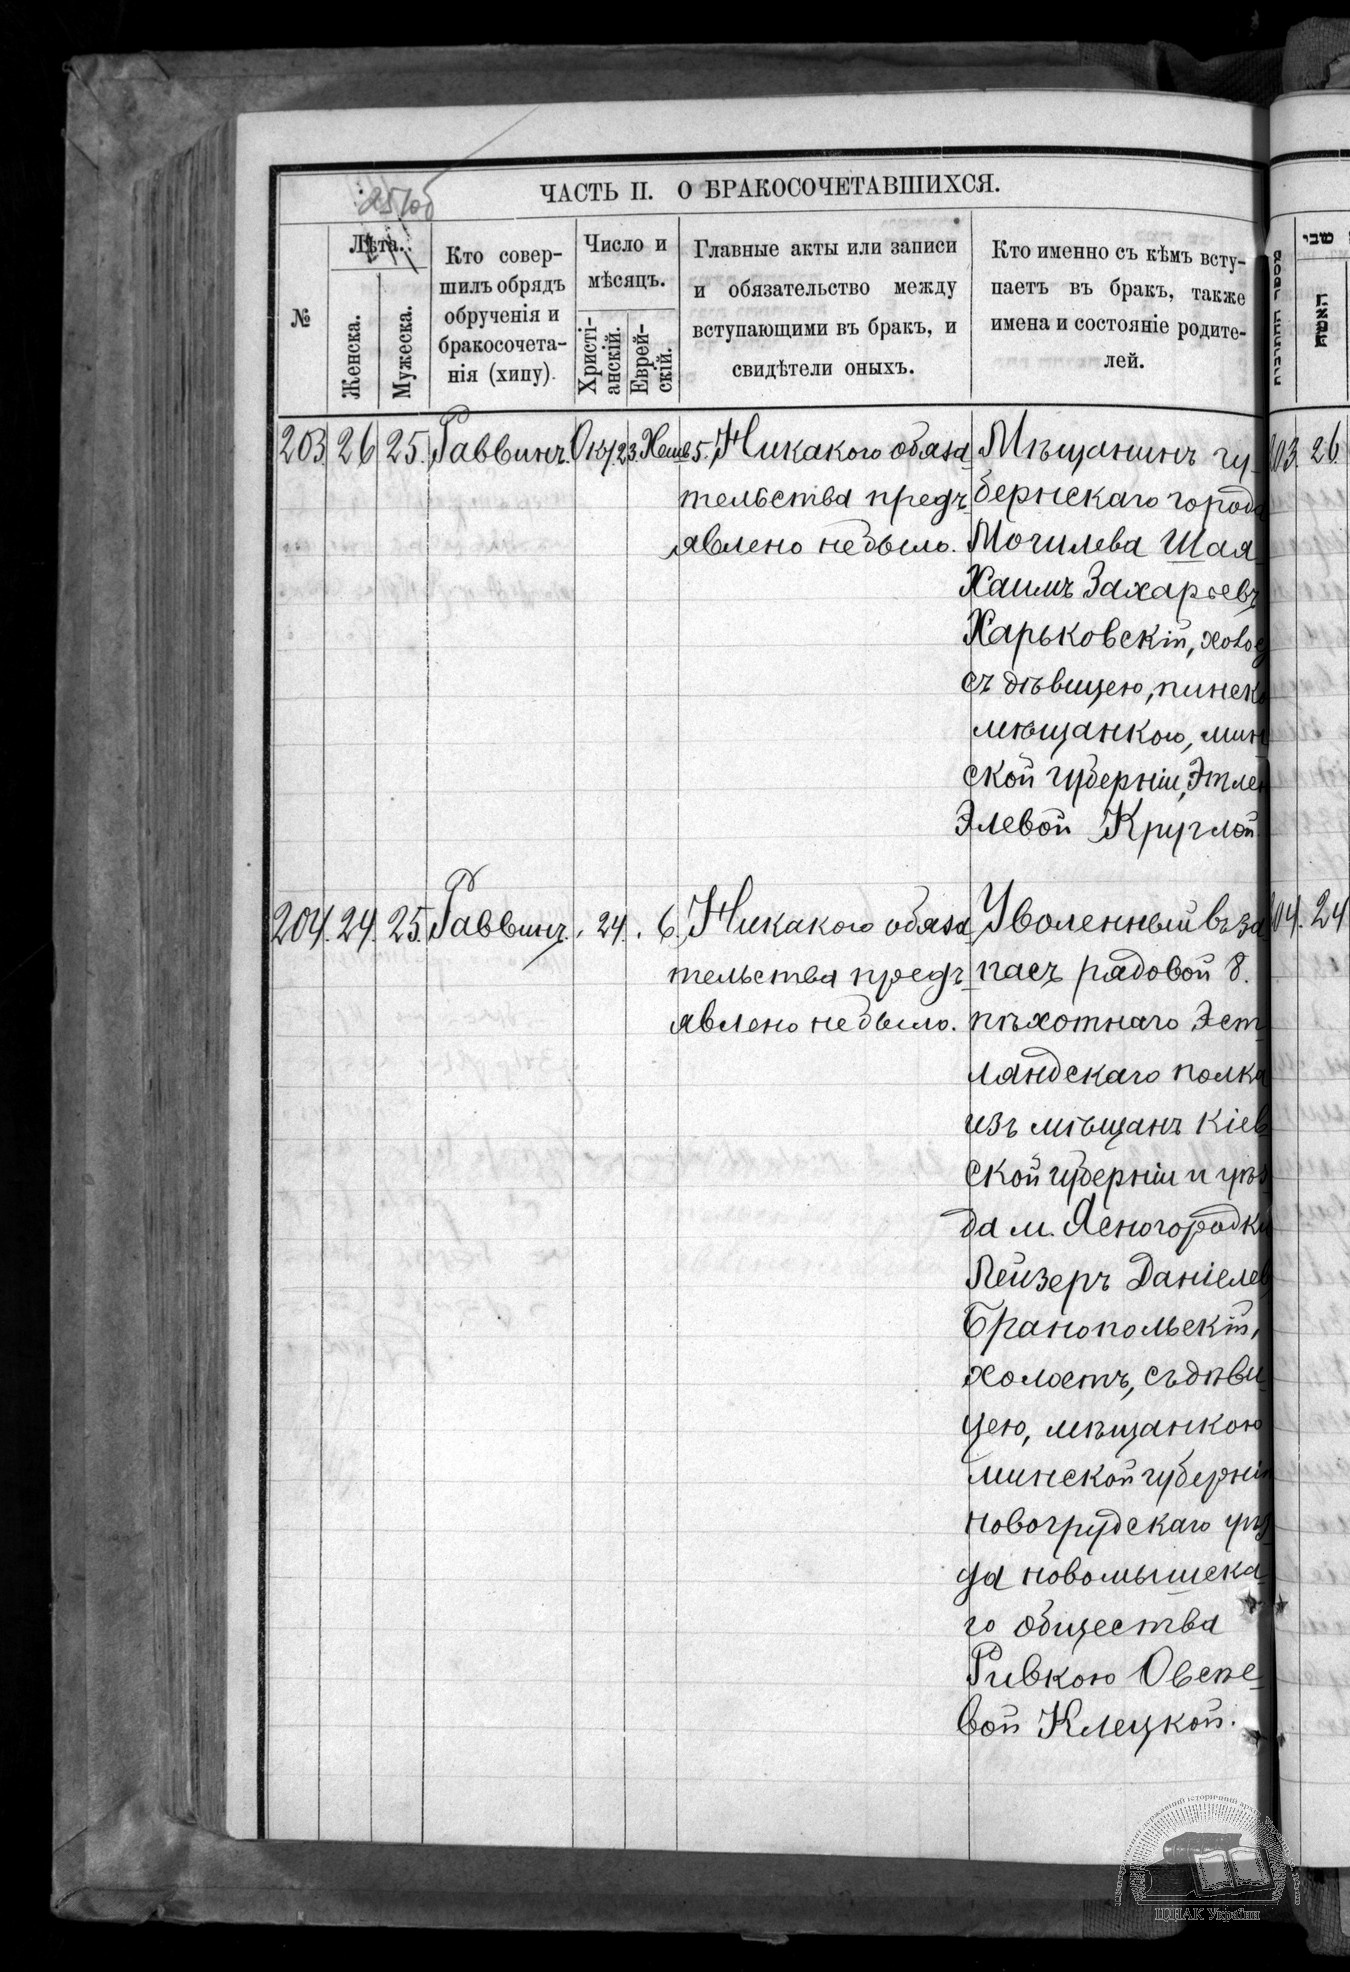 257об
ЧАСТЬ II. О БРАКОСОЧЕТАВШИХСЯ.
№
Лѣта.
Женска.
Мужеска.
Кто совер-
шилъ обрядъ
обрученія и
бракосочета-
нія (хипу).
Число и
мѣсяцъ.
Христі-
анскій.
Еврей-
скій.
Главные акты или записи
и обязательство между
вступающими въ бракъ, и
свидѣтели оныхъ.
Кто именно съ кѣмъ всту-
паетъ въ бракъ, также
имена и состояніе родите-
лей.
203. 26. 25. Раввинъ. Окт. 23. Хешв. 5. Никакого обяза-
тельства предъ-
явлено не было.
Мѣщанинъ гу-
бернскаго города
Могилева Шая
Хаимъ Захарьевъ
Харьковскій, холос
съ дѣвицею, пинско
мѣщанкою, мин
ской губерніи, Этлею
Элевой Круглой.
204. 24. 25. Раввинъ. " 24. " 6. Никакого обяза-
тельства предъ-
явлено не было.
Уволенный въ за-
пасъ рядовой 8.
пѣхотнаго Эст-
ляндскаго полка
изъ мѣщанъ Кіев-
ской губерніи и уѣз-
да м. Ясногородки
Лейзеръ Даніелев
Бранопольскій,
холостъ, съ дѣви-
цею, мѣщанкою
минской губерніи
новогрудскаго уѣз-
да новомышска-
го общества
Ривкою Овсее-
вой Клецкой.
203. 26.
204. 24
מספר החתונות
שני
האשה
ЦДІАК України